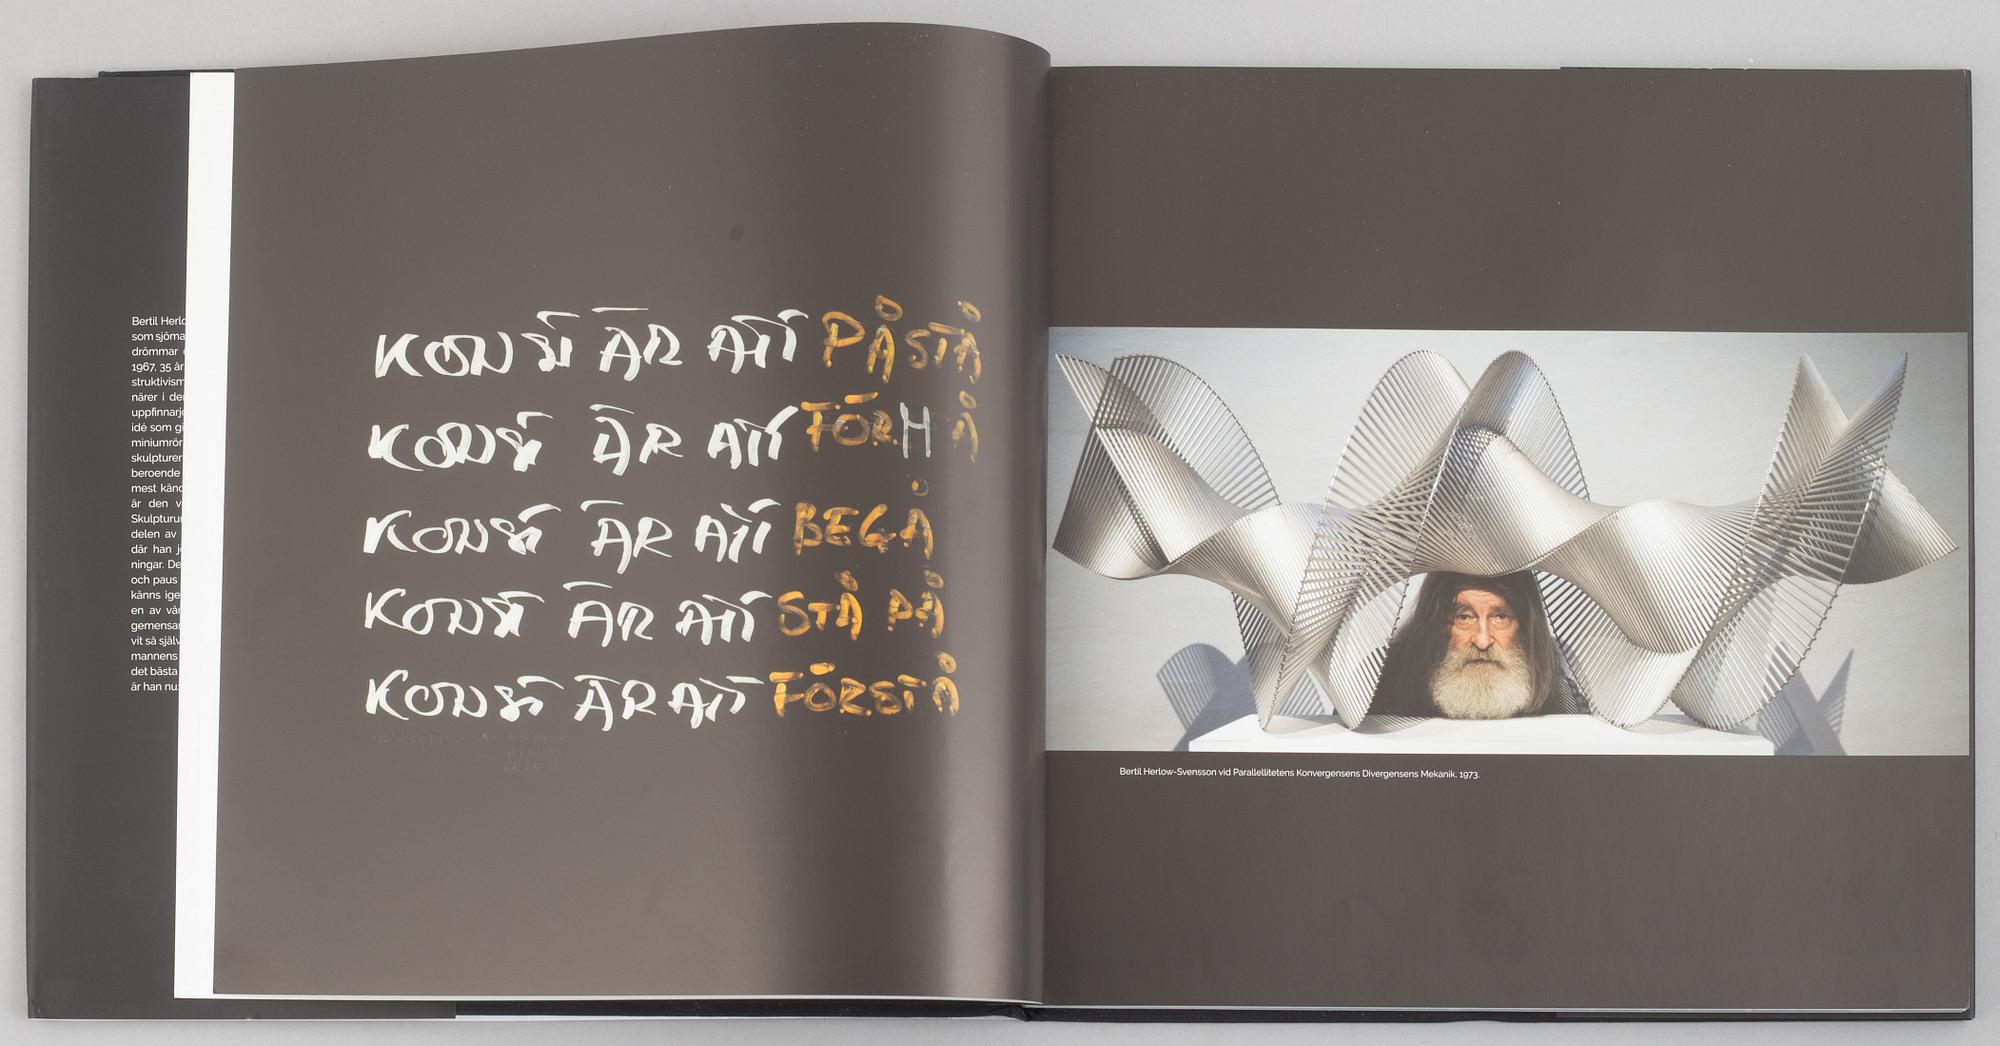 Bertil Herlo
som sjöma
drömmar
1967, 35 år
struktivism
närer i de
uppfinnarj
idé som gi
miniumrör
skulpturer
beroende
mest känd
är den v
Skulpturu
delen av
där han j
ningar. De
och paus
känns ige
en av vär
gemensa
vit så själv
mannens
det bästa
är han nu
KONST ÄR ATT PÅSTÅ
KONST ÄR ATT FÖRMÅ
KONST ÄR ATT BEGÅ
KONST ÄR ATT STÅ PÅ
KONST ÄR ATT FÖRSTÅ
Bertil Herlow-Svensson vid Parallellitetens Konvergensens Divergensens Mekanik, 1973.